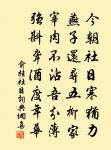 今朝社日寒猶力
燕子還尋五柳家
宰肉不沾吾分薄
強斟聾酒度年華
俞桂社日詞典網書